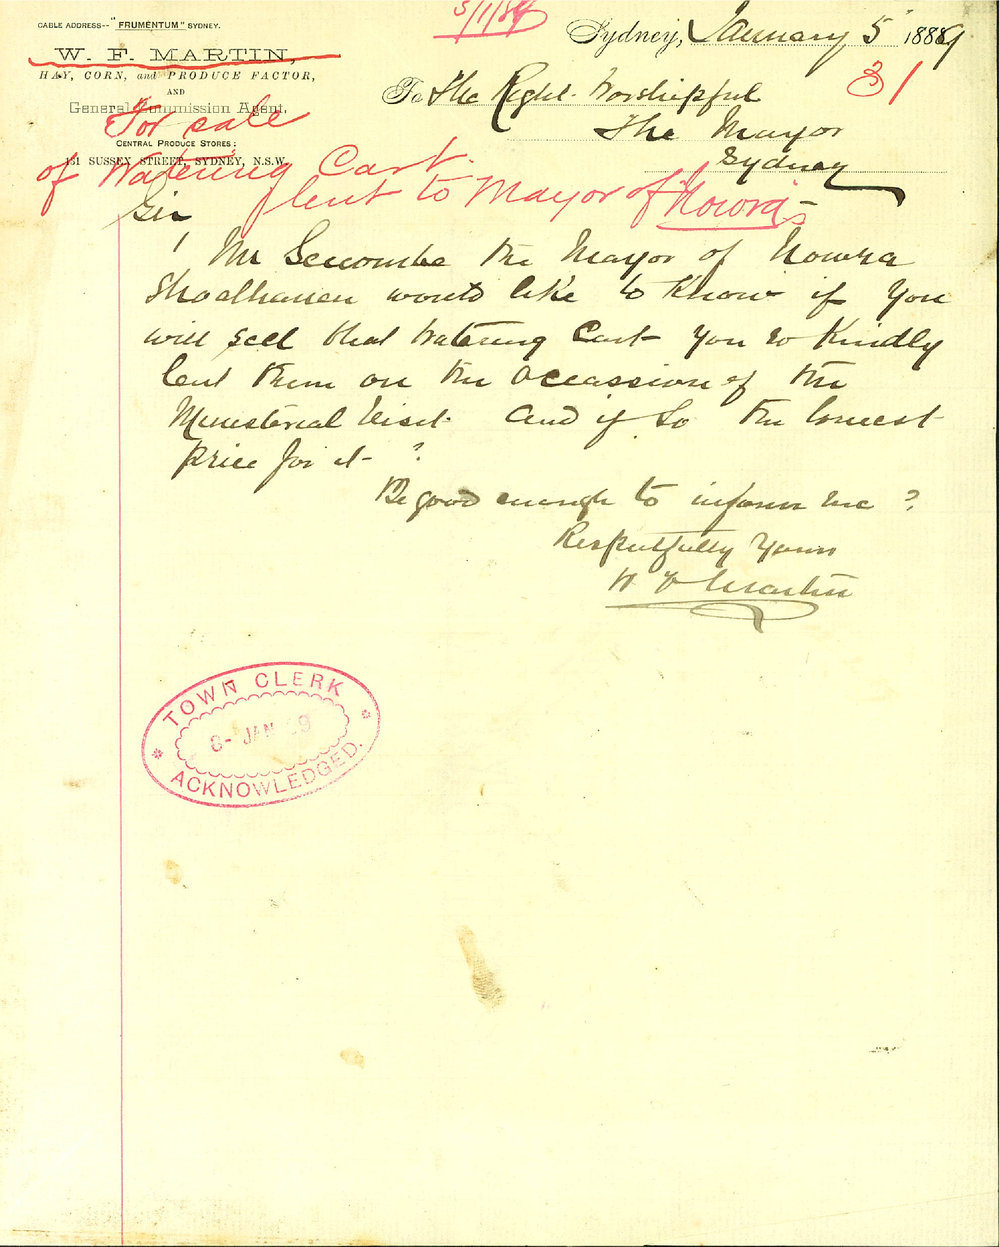 CABLE ADDRESS--"FRUMENTUM" SYDNEY.
W. F. MARTIN,
HAY, CORN, and PRODUCE FACTOR,
AND
General Commission Agent.
CENTRAL PRODUCE STORES:
131 SUSSEX STREET, SYDNEY, N.S.W.
5/1/89
Sydney, January 5 1889
31
To The Right Worshipful
The Mayor
Sydney
For sale
of Watering Cart
lent to Mayor of Nowra
Sir
Mr Seccombe the Mayor of Nowra
Shoalhaven would like to know if you
will sell that Watering Cart you so kindly
lent them on the Occassion of the
Ministerial Visit. And if so the lowest
price for it ?
Be good enough to inform me ?
Respectfully Yours
W F Martin
TOWN CLERK
8- JAN 89
ACKNOWLEDGED.